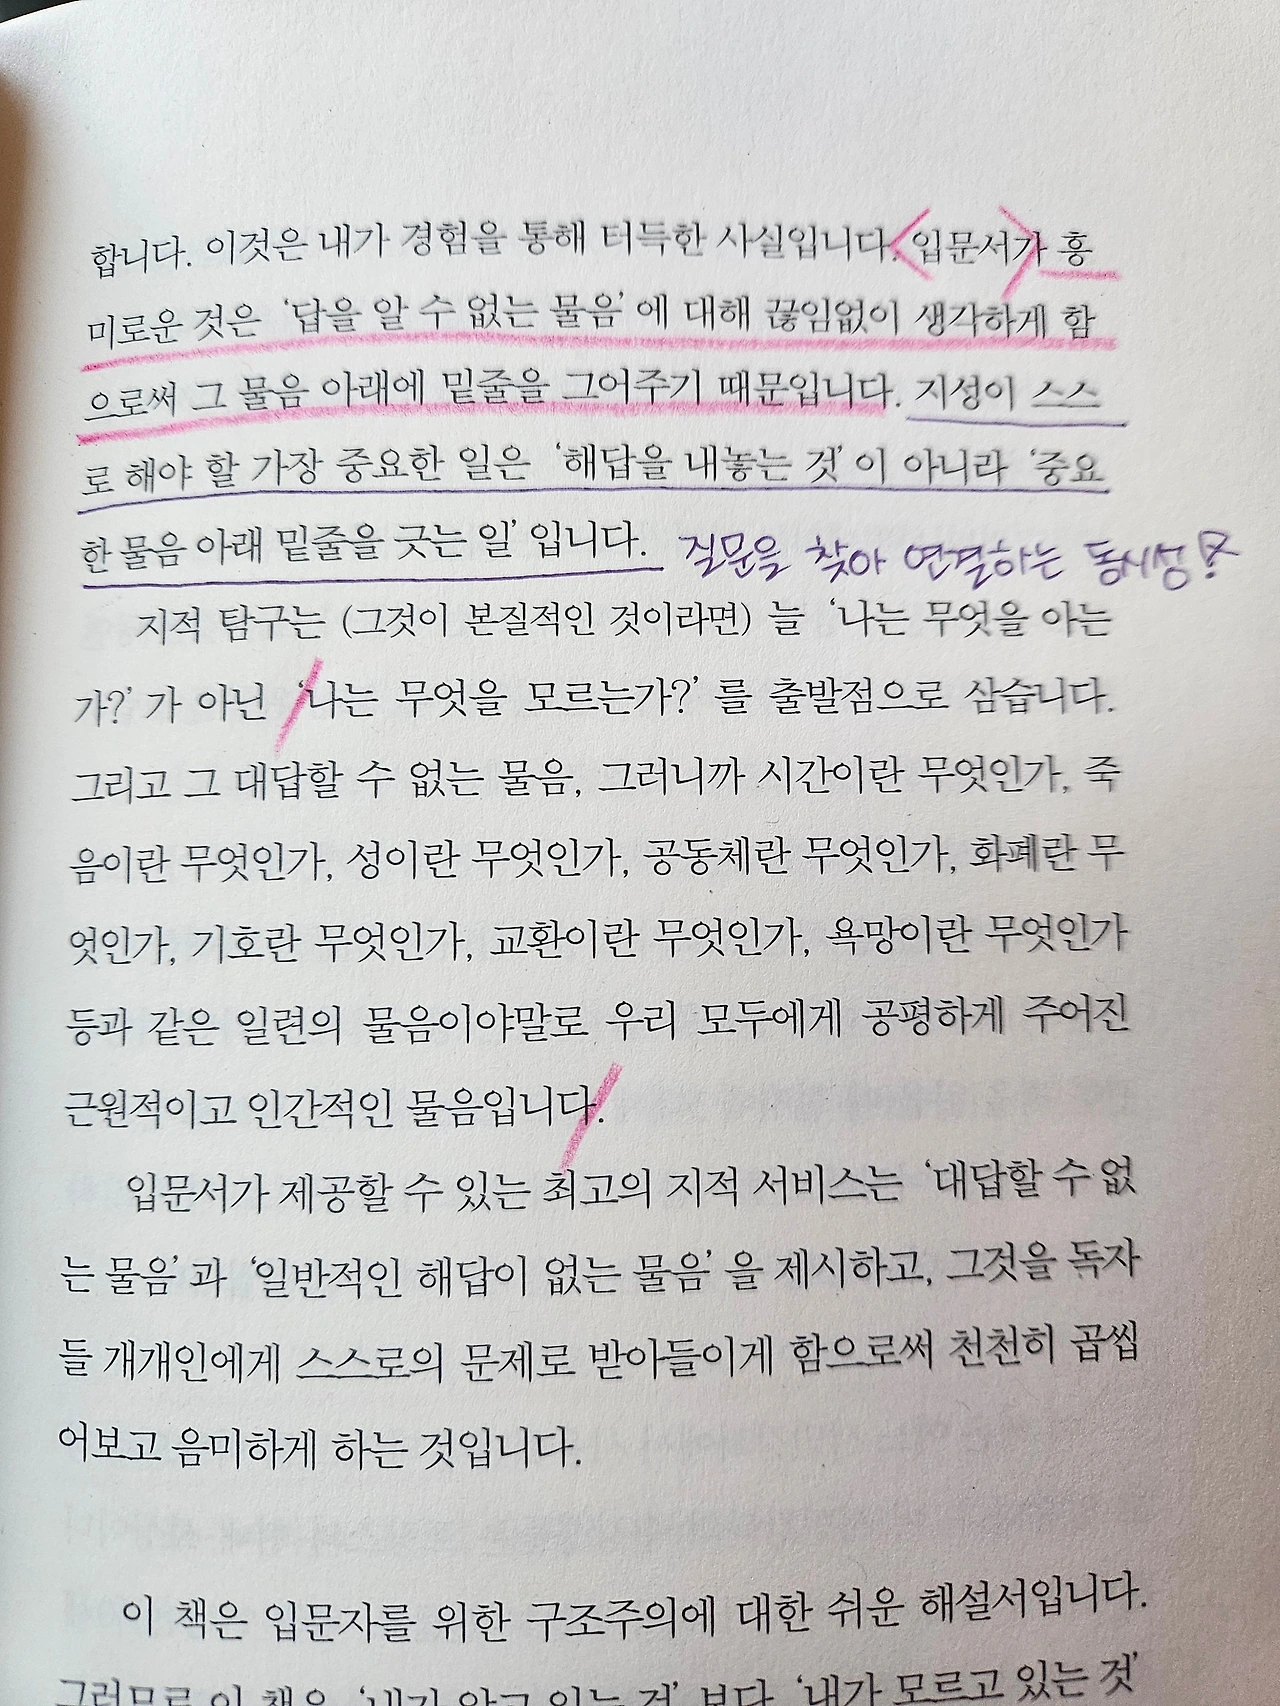 합니다. 이것은 내가 경험을 통해 터득한 사실입니다. 입문서가 흥
미로운 것은 ‘답을 알 수 없는 물음’에 대해 끊임없이 생각하게 함
으로써 그 물음 아래에 밑줄을 그어주기 때문입니다. 지성이 스스
로 해야 할 가장 중요한 일은 ‘해답을 내놓는 것’이 아니라 ‘중요
한 물음 아래 밑줄을 긋는 일’입니다. 질문을 찾아 연결하는 동시성?
지적 탐구는 (그것이 본질적인 것이라면) 늘 ‘나는 무엇을 아는
가?’가 아닌 ‘나는 무엇을 모르는가?’를 출발점으로 삼습니다.
그리고 그 대답할 수 없는 물음, 그러니까 시간이란 무엇인가, 죽
음이란 무엇인가, 성이란 무엇인가, 공동체란 무엇인가, 화폐란 무
엇인가, 기호란 무엇인가, 교환이란 무엇인가, 욕망이란 무엇인가
등과 같은 일련의 물음이야말로 우리 모두에게 공평하게 주어진
근원적이고 인간적인 물음입니다.
입문서가 제공할 수 있는 최고의 지적 서비스는 ‘대답할 수 없
는 물음’과 ‘일반적인 해답이 없는 물음’을 제시하고, 그것을 독자
들 개개인에게 스스로의 문제로 받아들이게 함으로써 천천히 곱씹
어보고 음미하게 하는 것입니다.
이 책은 입문자를 위한 구조주의에 대한 쉬운 해설서입니다.
그러므로 이 책은 ‘내가 알고 있는 것’보다 ‘내가 모르고 있는 것’